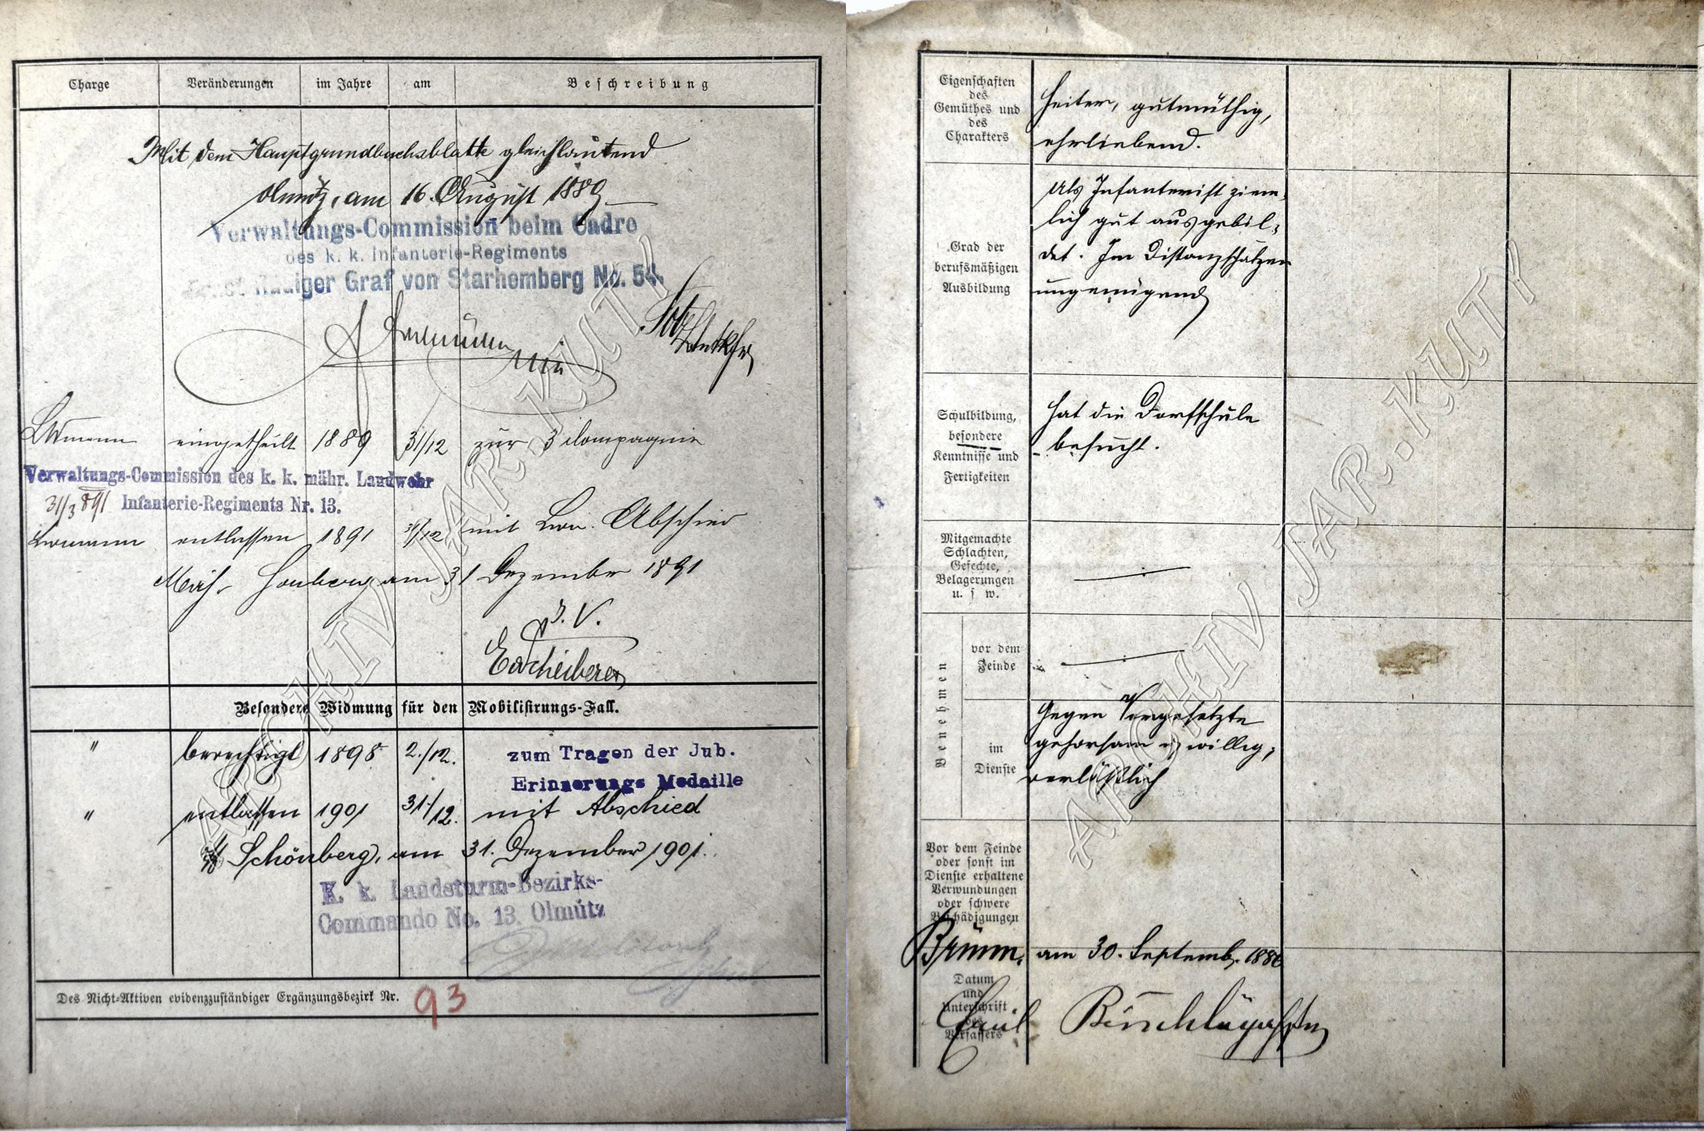 Charge Veränderungen im Jahre am Beschreibung
Mit dem Hauptgrundbuchsblatte gleichlautend
Olmütz, am 16. August 1889
Verwaltungs-Commission beim Cadre
des k. k. Infanterie-Regiments
Ernst Rüdiger Graf von Starhemberg No. 54.
Lwmann eingetheilt 1889 31/12 zur 3 Kompagnie
Verwaltungs-Commission des k. k. mähr. Landwehr
31/3 891 Infanterie-Regiments Nr. 13.
Lwmann entlassen 1891 31/12 mit Lw. Abschied
Mähr. Schönberg am 31 Dezember 1891
I. V.
Besondere Widmung für den Mobilisirungs-Fall.
" berechtigt 1898 2./12. zum Tragen der Jub.
Erinnerungs Medaille
" entlassen 1901 31./12. mit Abschied
Schönberg, am 31. Dezember 1901.
K. k. Landsturm-Bezirks-
Commando No. 13. Olmütz
Des Nicht-Aktiven evidenzzuständiger Ergänzungsbezirk Nr. 93
Eigenschaften
des
Gemüthes und
des
Charakters
heiter, gutmüthig,
ehrliebend.
Grad der
berufsmäßigen
Ausbildung
Als Infanterist ziem-
lich gut ausgebil-
det. Im Distanzschätzen
ungenügend
Schulbildung,
besondere
Kenntnisse und
Fertigkeiten
hat die Dorfschule
besucht.
Mitgemachte
Schlachten,
Gefechte,
Belagerungen
u. s. w.
Benehmen
vor dem
Feinde
im
Dienste
Gegen Vorgesetzte
gehorsam u. willig,
verläßlich
Vor dem Feinde
oder sonst im
Dienste erhaltene
Verwundungen
oder schwere
Beschädigungen
Brünn, am 30. Septemb. 1886
Datum
und
Unterschrift
des
Verfassers
Emil
ARCHIV JAR.KUTÝ
ARCHIV JAR.KUTÝ